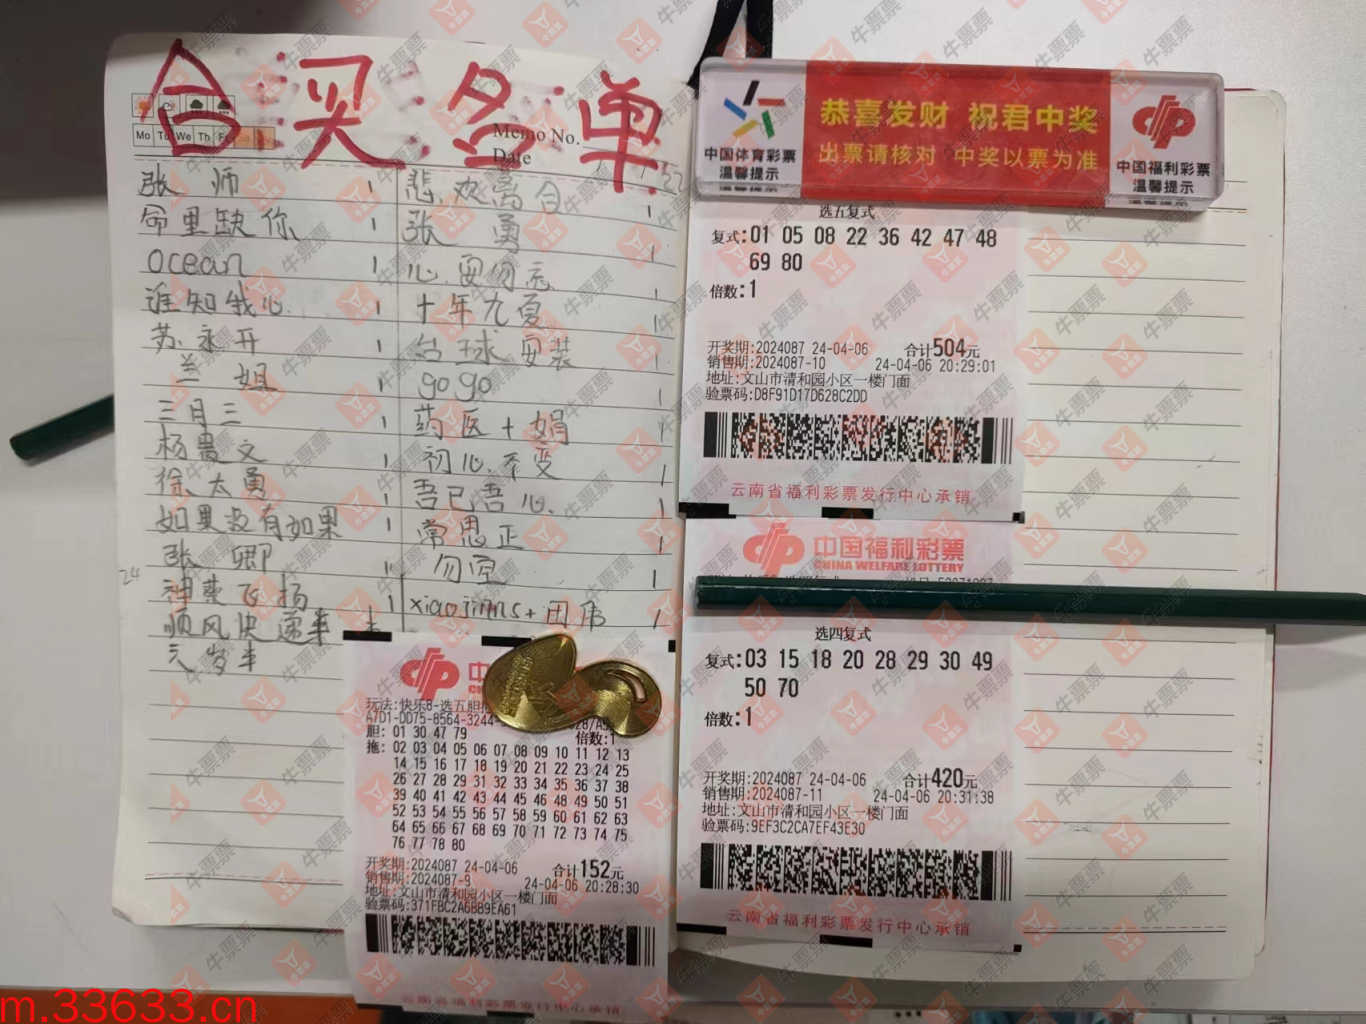 合买名单
Mo Tu We Th Fr
Memo No.
Date
张 师 1
命里缺你 1
ocean 1
谁知我心 1
苏永开 1
兰 姐 1
三月三 1
杨贵文 1
徐太勇 1
如果没有如果 1
张 卿 1
神桑飞扬 1
顺风快递来
悲欢离合 1
张 勇 1
十年九夏 1
台球安装 1
gogo 1
药医+娟 1
初心不变 1
吾已吾心 1
常思正 1
勿空 1
恭喜发财 祝君中奖
出票请核对 中奖以票为准
中国体育彩票
温馨提示
中国福利彩票
温馨提示
选五复式
复式:01 05 08 22 36 42 47 48
69 80
倍数:1
开奖期:2024087 24-04-06 合计504元
销售期:2024087-10 24-04-06 20:29:01
地址:文山市清和园小区一楼门面
验票码:D8F91D17D628C2DD
云南省福利彩票发行中心承销
中国福利彩票
CHINA WELFARE LOTTERY
选四复式
复式:03 15 18 20 28 29 30 49
50 70
倍数:1
开奖期:2024087 24-04-06 合计420元
销售期:2024087-11 24-04-06 20:31:38
地址:文山市清和园小区一楼门面
验票码:9EF3C2CA7EF43E30
云南省福利彩票发行中心承销
玩法:快乐8-选五胆
A7D1-0075-8564-3244
胆: 01 30 47 79 倍数:1
拖: 02 03 04 05 06 07 08 09 10 11 12 13
14 15 16 17 18 19 20 21 22 23 24 25
26 27 28 29 31 32 33 34 35 36 37 38
39 40 41 42 43 44 45 46 48 49 50 51
52 53 54 55 56 57 58 59 60 61 62 63
64 65 66 67 68 69 70 71 72 73 74 75
76 77 78 80
开奖期:2024087 24-04-06 合计152元
销售期:2024087-9 24-04-06 20:28:30
地址:文山市清和园小区一楼门面
验票码:371FBC2A6BB9EA61
云南省福利彩票发行中心承销
牛票票
m.33633.cn